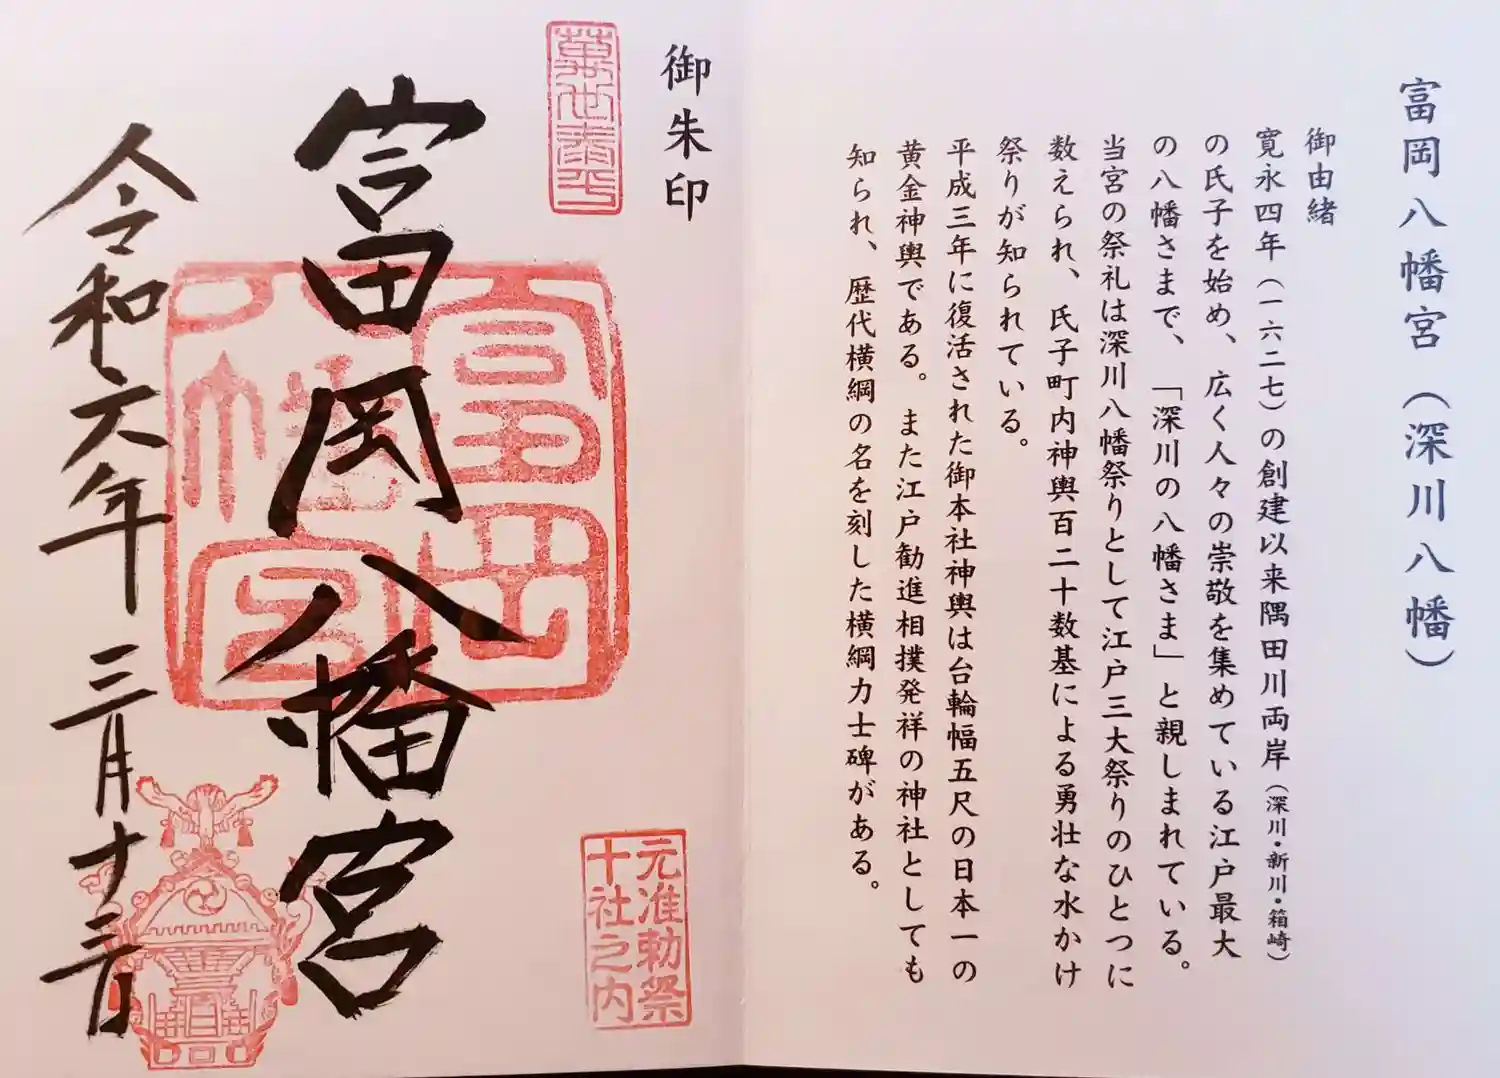 富岡八幡宮(深川八幡)
御由緒
寛永四年(一六二七)の創建以来隅田川両岸(深川・新川・箱崎)
の氏子を始め、広く人々の崇敬を集めている江戸最大
の八幡さまで、「深川の八幡さま」と親しまれている。
当宮の祭礼は深川八幡祭りとして江戸三大祭りのひとつに
数えられ、氏子町内神輿百二十数基による勇壮な水かけ
祭りが知られている。
平成三年に復活された御本社神輿は台輪幅五尺の日本一の
黄金神輿である。また江戸勧進相撲発祥の神社としても
知られ、歴代横綱の名を刻した横綱力士碑がある。
御朱印
元准勅祭
十社之内
富岡八幡宮
富岡
八幡宮
令和六年三月十三日